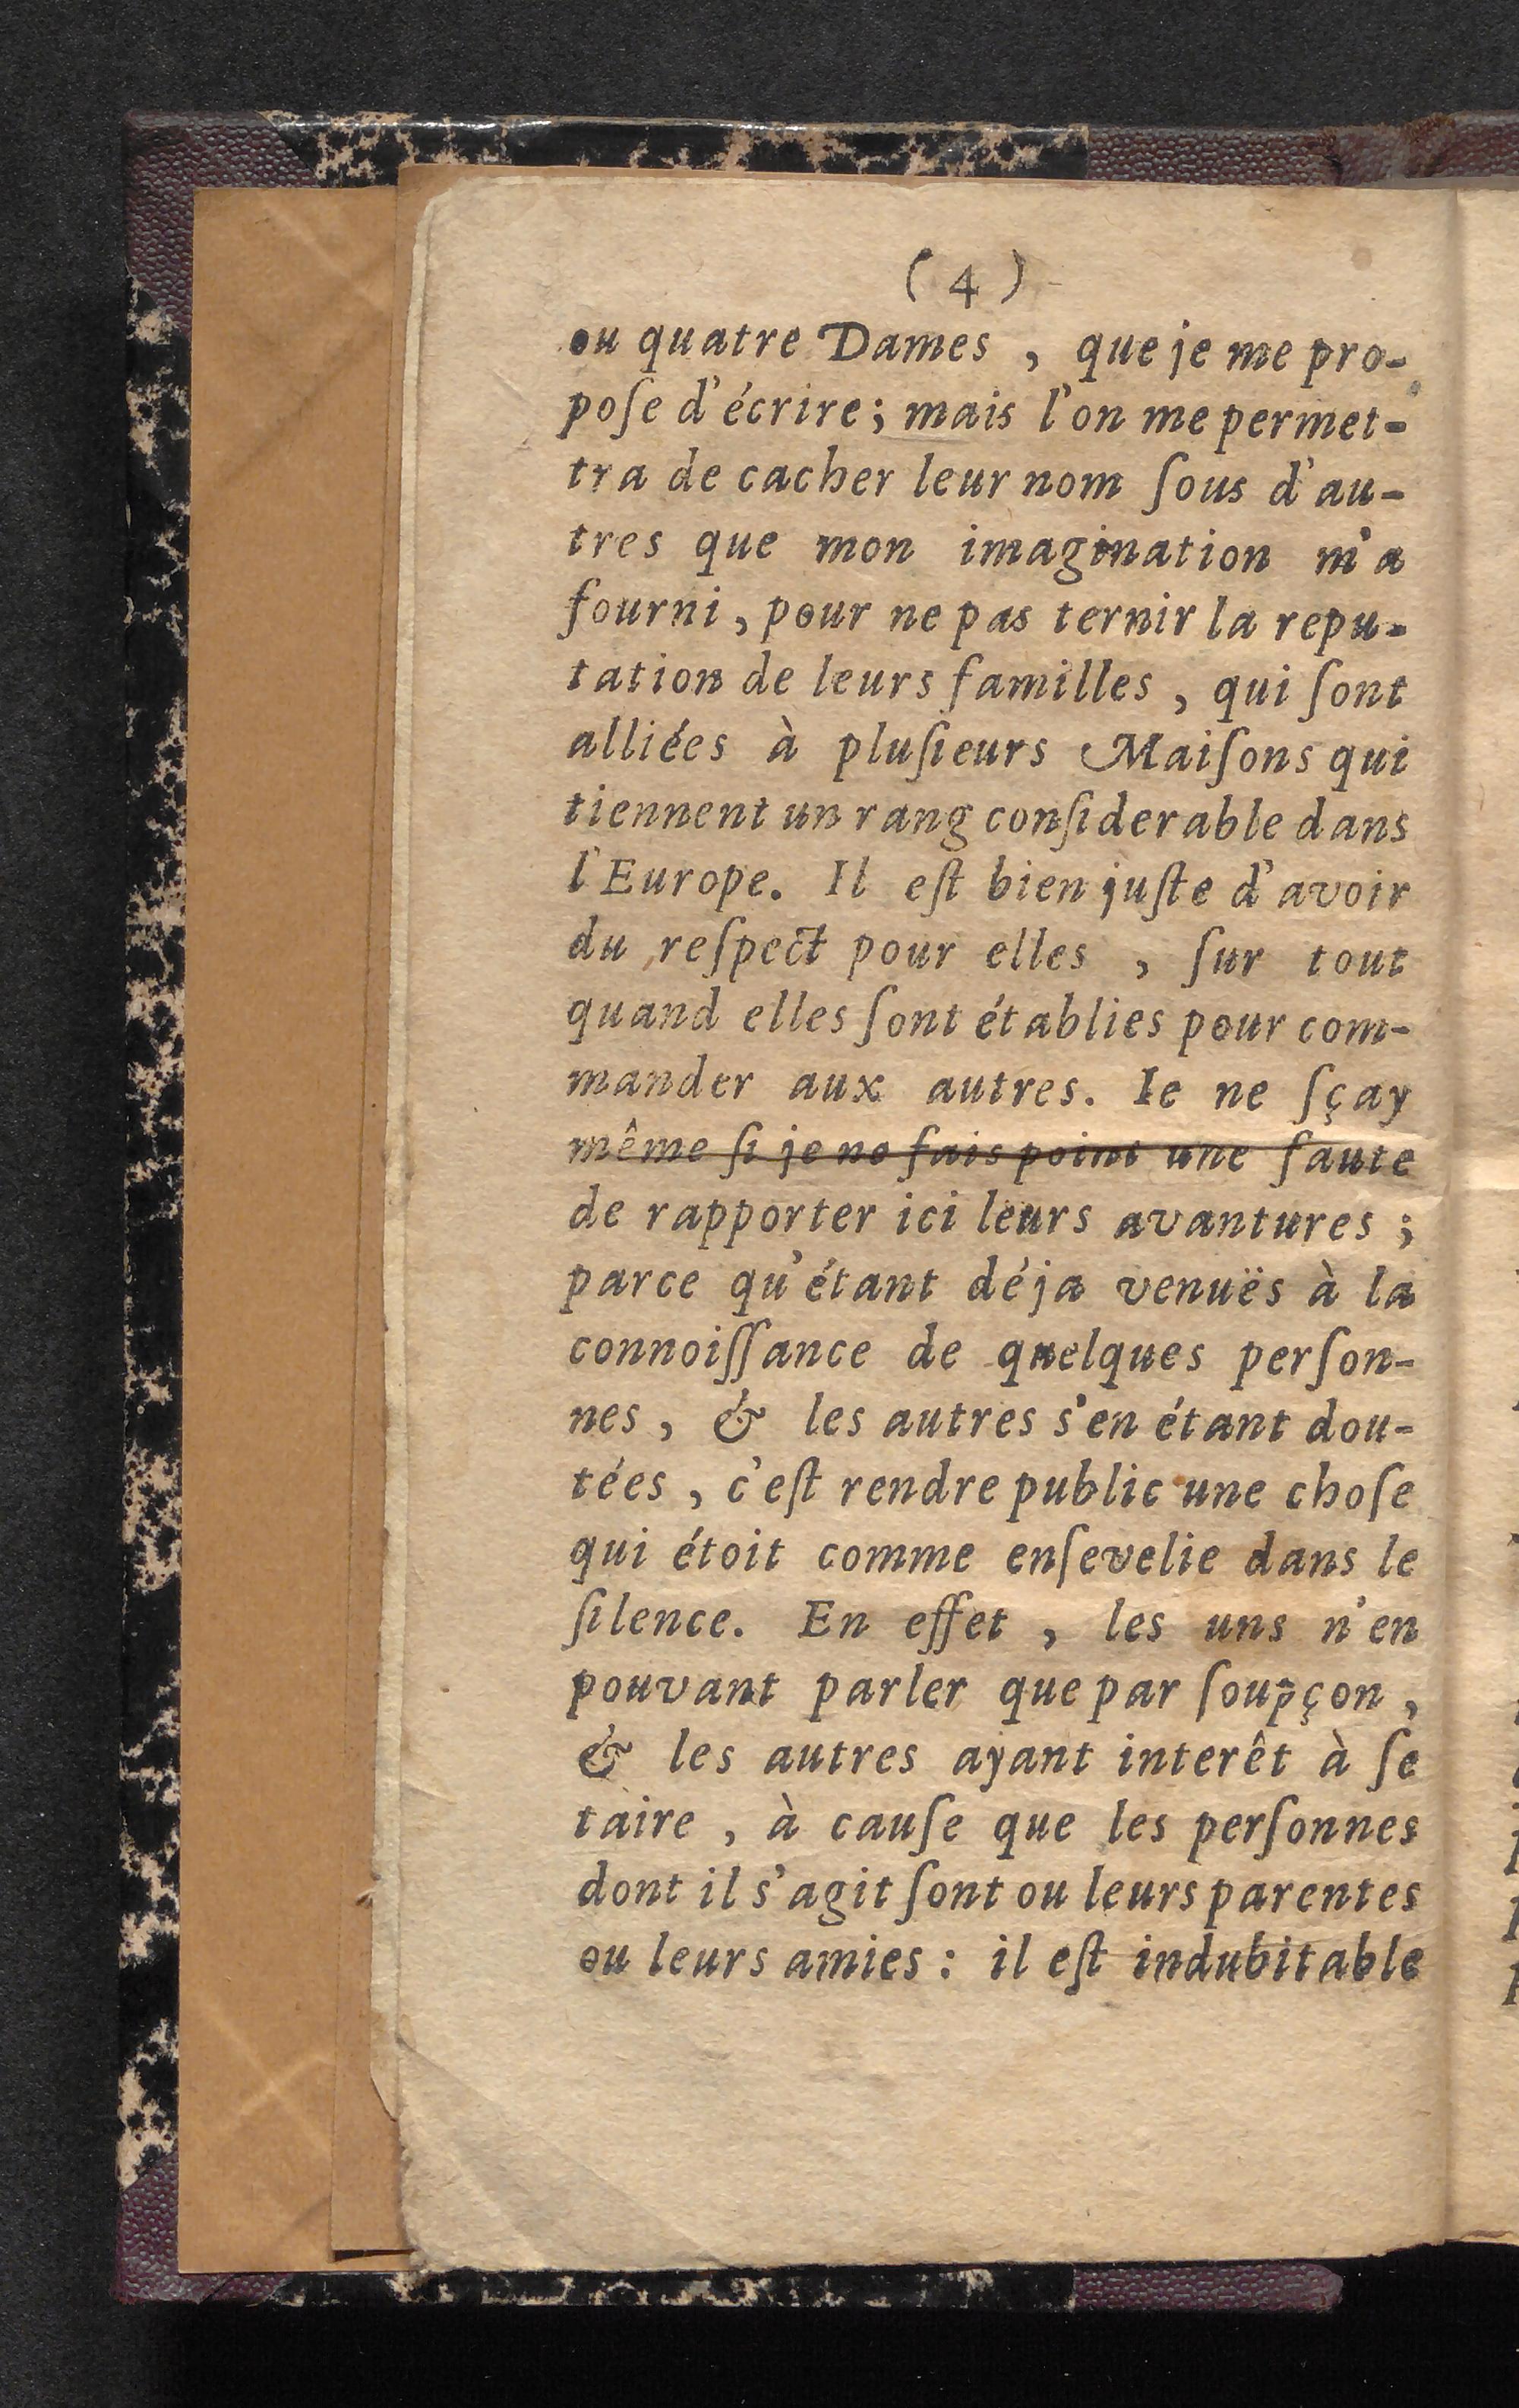 ( 4 )
ou quatre Dames , que je me pro-
poſe d'écrire ; mais l'on me permet-
tra de cacher leur nom ſous d'au-
tres que mon imagination m'a
fourni , pour ne pas ternir la repu-
tation de leurs familles , qui ſont
alliées à pluſieurs Maiſons qui
tiennent un rang conſiderable dans
l'Europe. Il eſt bien juſte d'avoir
du reſpect pour elles , ſur tout
quand elles ſont établies pour com-
mander aux autres. Ie ne ſçay
même ſi je ne fais point une faute
de rapporter ici leurs avantures ;
parce qu'étant déja venuës à la
connoiſſance de quelques perſon-
nes , & les autres s'en étant dou-
tées , c'eſt rendre public une choſe
qui étoit comme enſevelie dans le
ſilence. En effet , les uns n'en
pouvant parler que par ſoupçon ,
& les autres ayant interêt à ſe
taire , à cauſe que les perſonnes
dont il s'agit ſont ou leurs parentes
ou leurs amies : il eſt indubitable